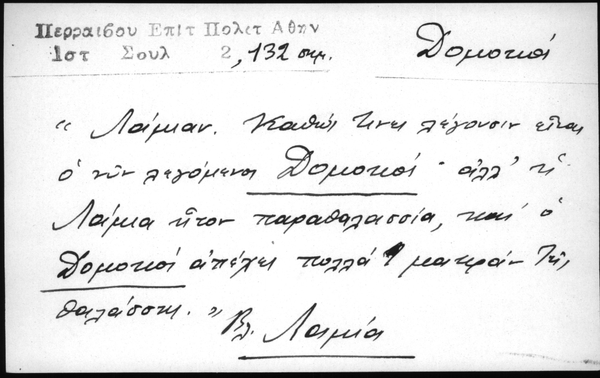 Περραιβου Επιτ Πολετ Αθην
1στ Σουλ 2, 132 σημ.
Δομοκοί
"Λάμιαν. Καθώς τινες λέγουσιν εἶναι
ὁ νῦν λεγόμενος Δομοκός · ἀλλ' ἡ
Λάμια ἦτον παραθαλασσία, καί ὁ
Δομοκός ἀπέχει πολλά μακράν τῆς
θαλάσσης."
Βλ. Λαμία